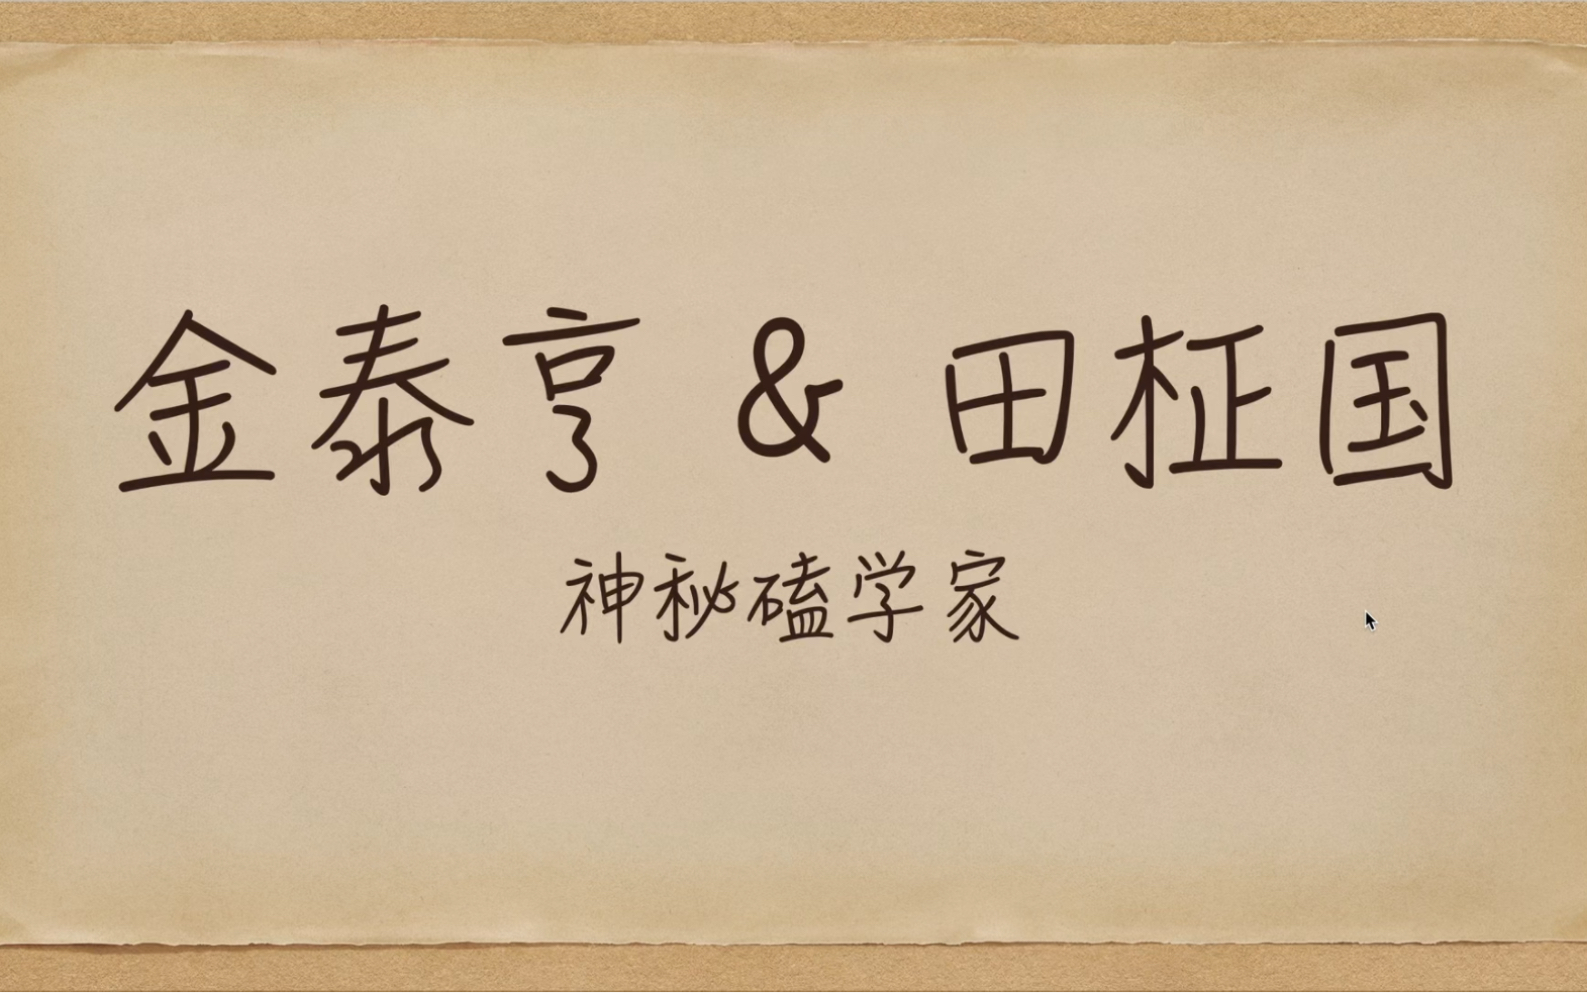 金泰亨 & 田柾国
神秘磕学家